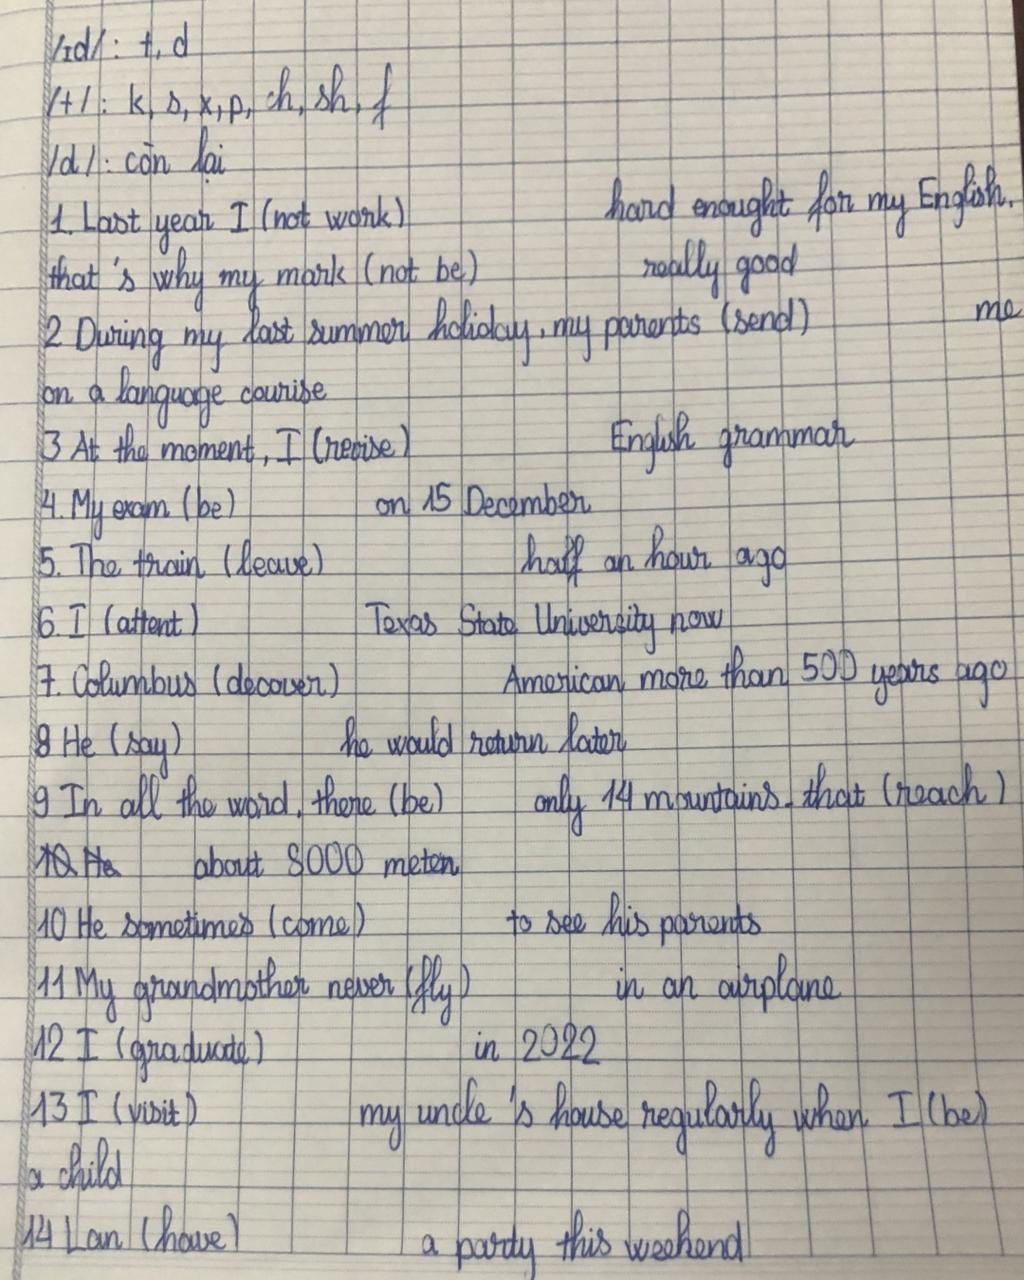 /ɪd/: t, d
/t/: k, s, x, p, ch, sh, f
/d/: còn lại
1. Last year I (not work) hard enought for my English.
that's why my mark (not be) really good
2 During my last summer holiday, my parents (send) me
on a language courise
3 At the moment, I (revise) English grammar
4. My exam (be) on 15 December
5. The train (leave) half an hour ago
6. I (attent) Texas State University now
7. Columbus (decover) American more than 500 years ago
8 He (say) he would return later
9 In all the word, there (be) only 14 mountains that (reach)
10 He about 8000 meten
10 He sometimes (come) to see his parents
11 My grandmother never (fly) in an airplane
12 I (graduate) in 2022
13 I (visit) my uncle's house regularly when I (be)
a child
14 Lan (have) a party this weekend